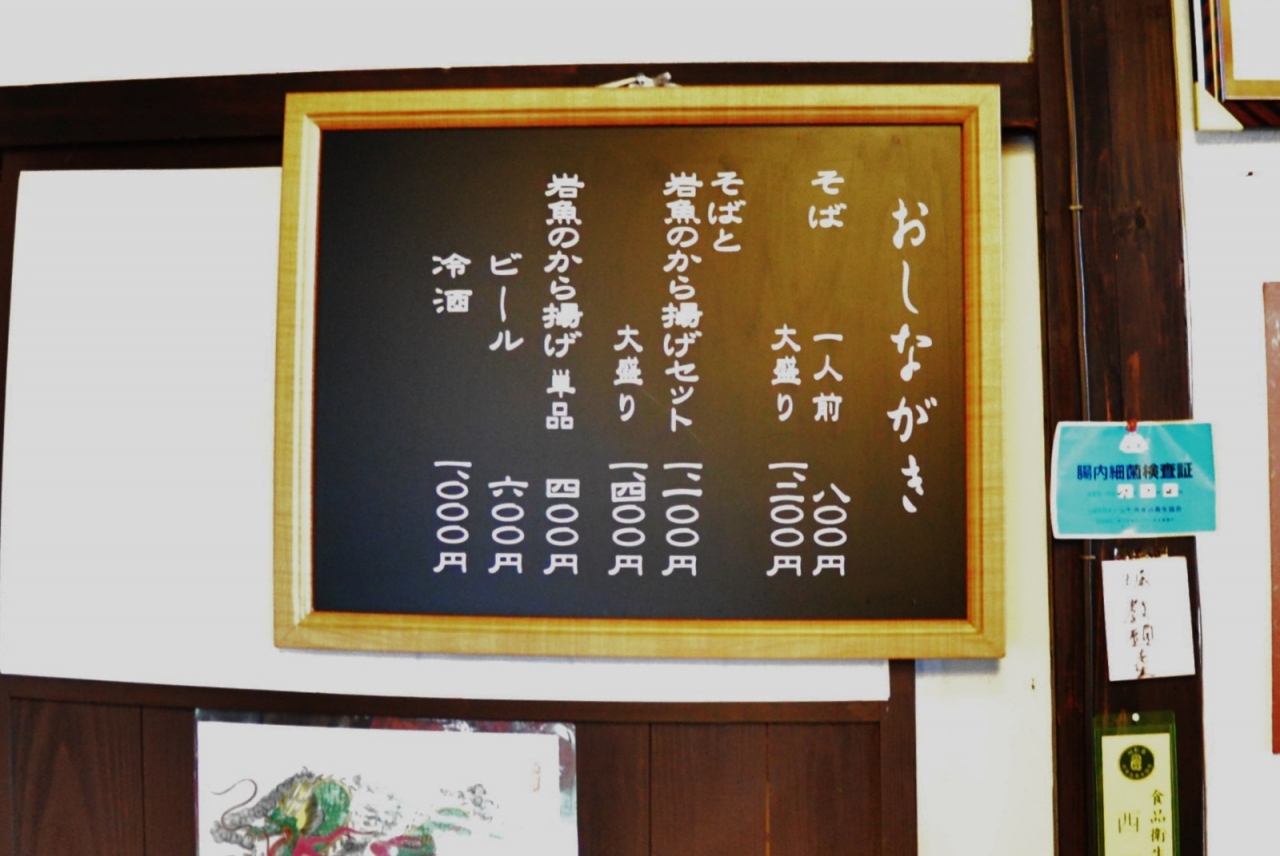 おしながき
そば 一人前 八〇〇円
大盛り 一、二〇〇円
そばと
岩魚のから揚げセット 一、一〇〇円
大盛り 一、四〇〇円
岩魚のから揚げ 単品 四〇〇円
ビール 六〇〇円
冷酒 一、〇〇〇円
腸内細菌検査証
食品衛生
西